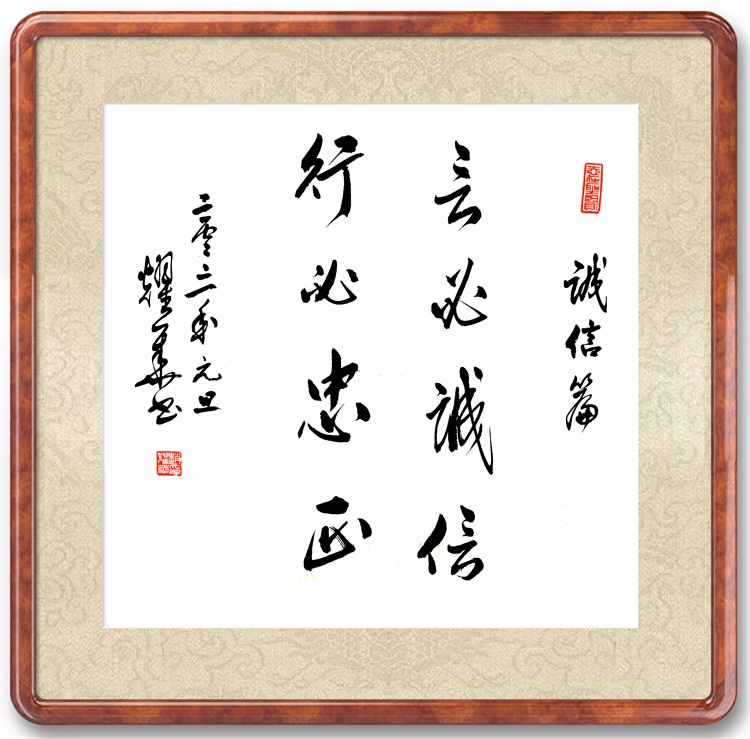 誠信篇
言必誠信
行必忠正
二零二二年元旦
耀華书